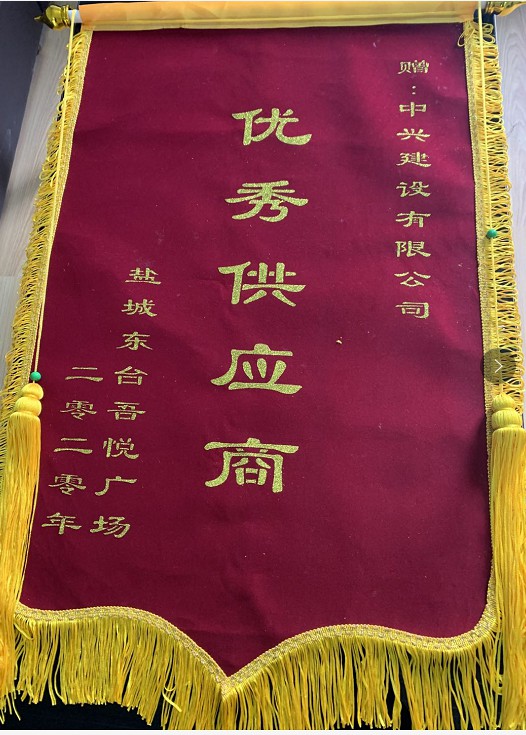 赠：中兴建设有限公司
优秀供应商
盐城东台吾悦广场
二零二零年